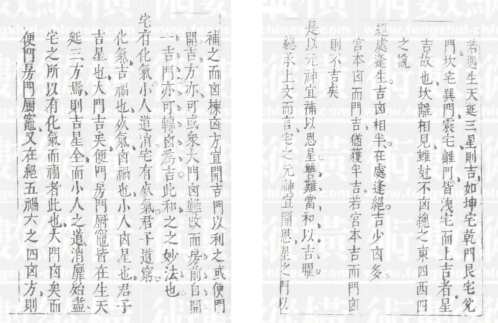 若遇生天延三星則吉如坤宅乾門艮宅兌
門坎宅巽門震宅離門皆洩宅而上吉者星
吉故也坎離相見雖尅不凶總之東四西四
之宅
絕處逢生吉凶相半在處逢絕吉少凶多
宮本凶而門吉猶獲半吉若宮本吉而門凶
則不吉矣
是以元神宜補以恩星難當和以吉曜
總承上文而言宅之元神宜開恩星之門以
補之而凶棟凶方宜開吉門以利之或便門
開吉方亦可或象大門凶難改而房前自開
一吉門亦可轉凶為吉此和之之妙法也
宅有化氣小人道消宅有煞氣君子道窮
化氣吉福也煞氣凶禍也小人凶星也君子
吉星也大門吉矣便門房門厨竈皆在生天
延三方焉則吉星全而小人之道消靡始盡
宅之所以有化氣而福者此也大門凶矣而
便門房門厨竈又在絕五禍六之四凶方則